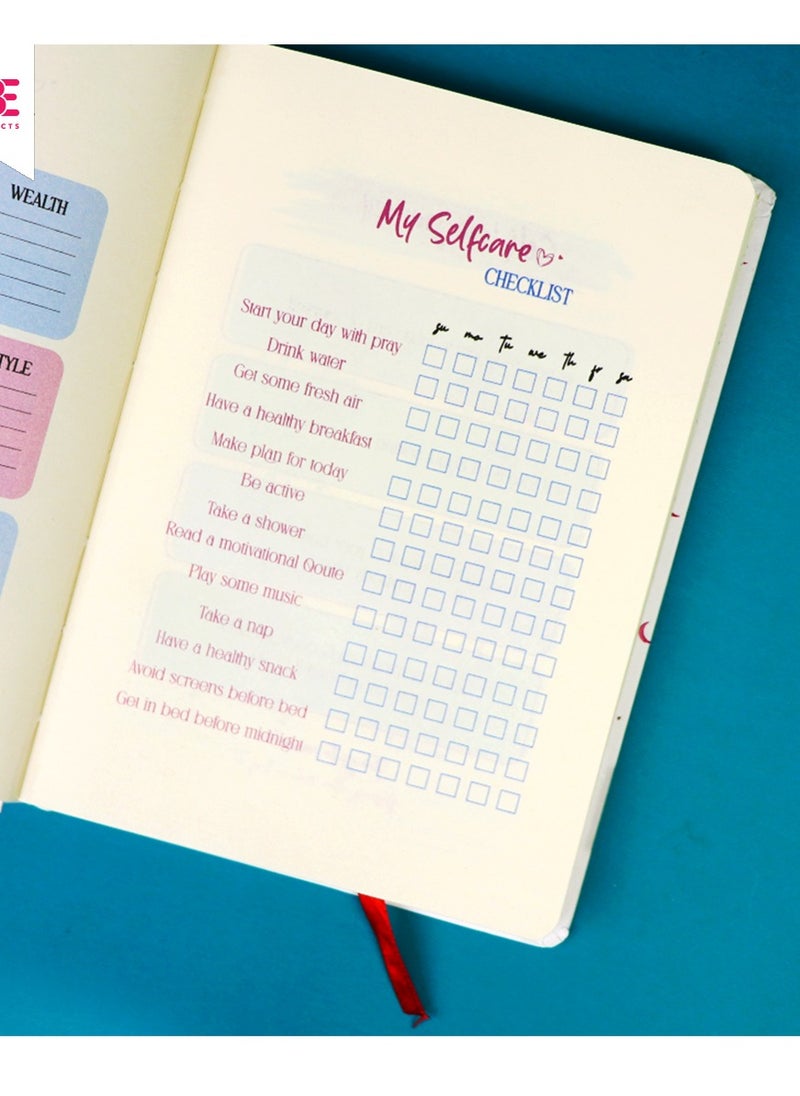 WEALTH
My Selfcare
CHECKLIST
su mo tu we th fr sa
Start your day with pray
Drink water
Get some fresh air
Have a healthy breakfast
Make plan for today
Be active
Take a shower
Read a motivational Qoute
Play some music
Take a nap
Have a healthy snack
Avoid screens before bed
Get in bed before midnight